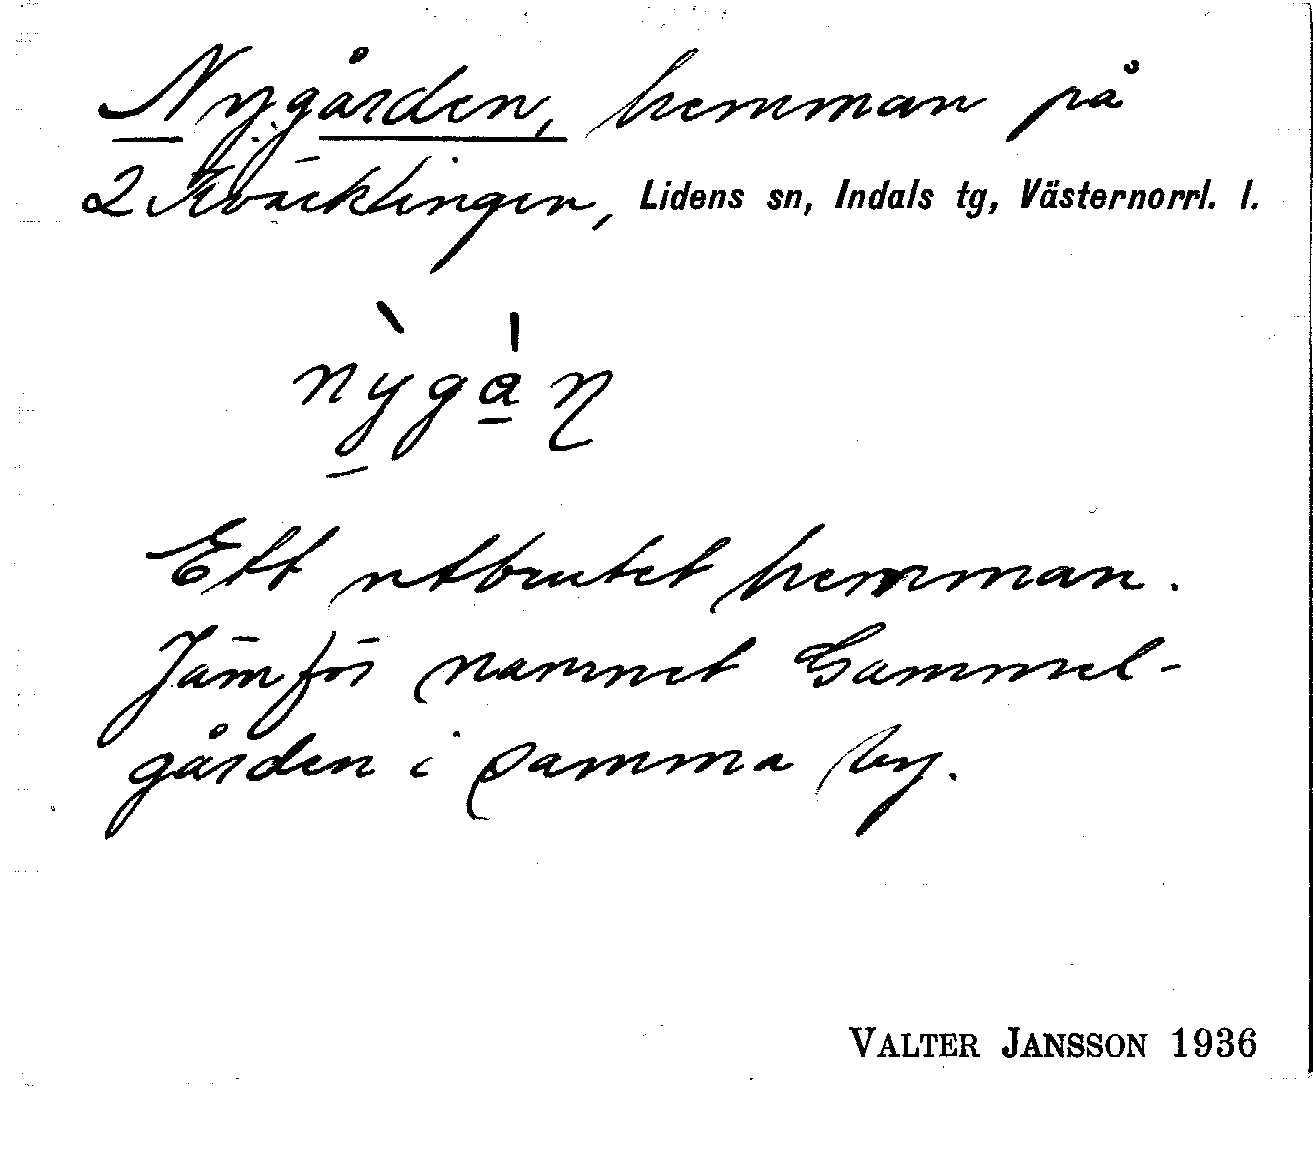 Nygården, hemman på
2 Kväcklingen, Lidens sn, Indals tg, Västernorrl. l.
nỳgàn̥
Ett utbrutet hemman.
Jämför namnet Gammel-
gården i samma by.
VALTER JANSSON 1936